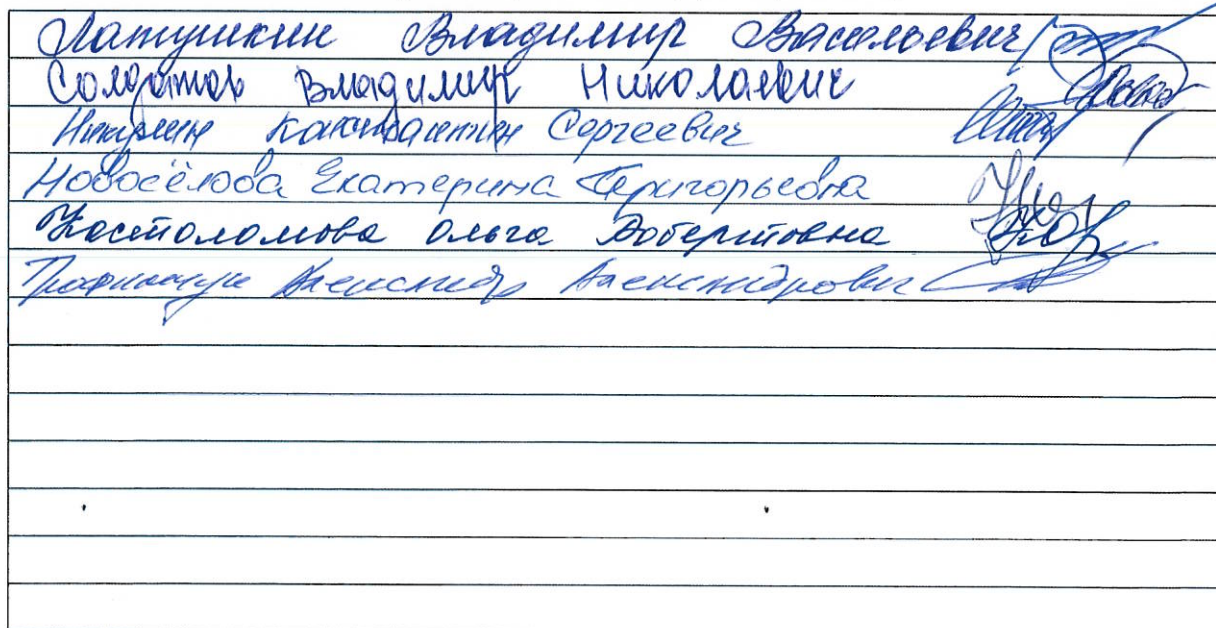 Латушкин Владимир Васильевич
Солдатов Владимир Николаевич
Никулин Константин Сергеевич
Новосёлова Екатерина Григорьевна
Костоломова Ольга Робертовна
Трофимчук Александр Александрович